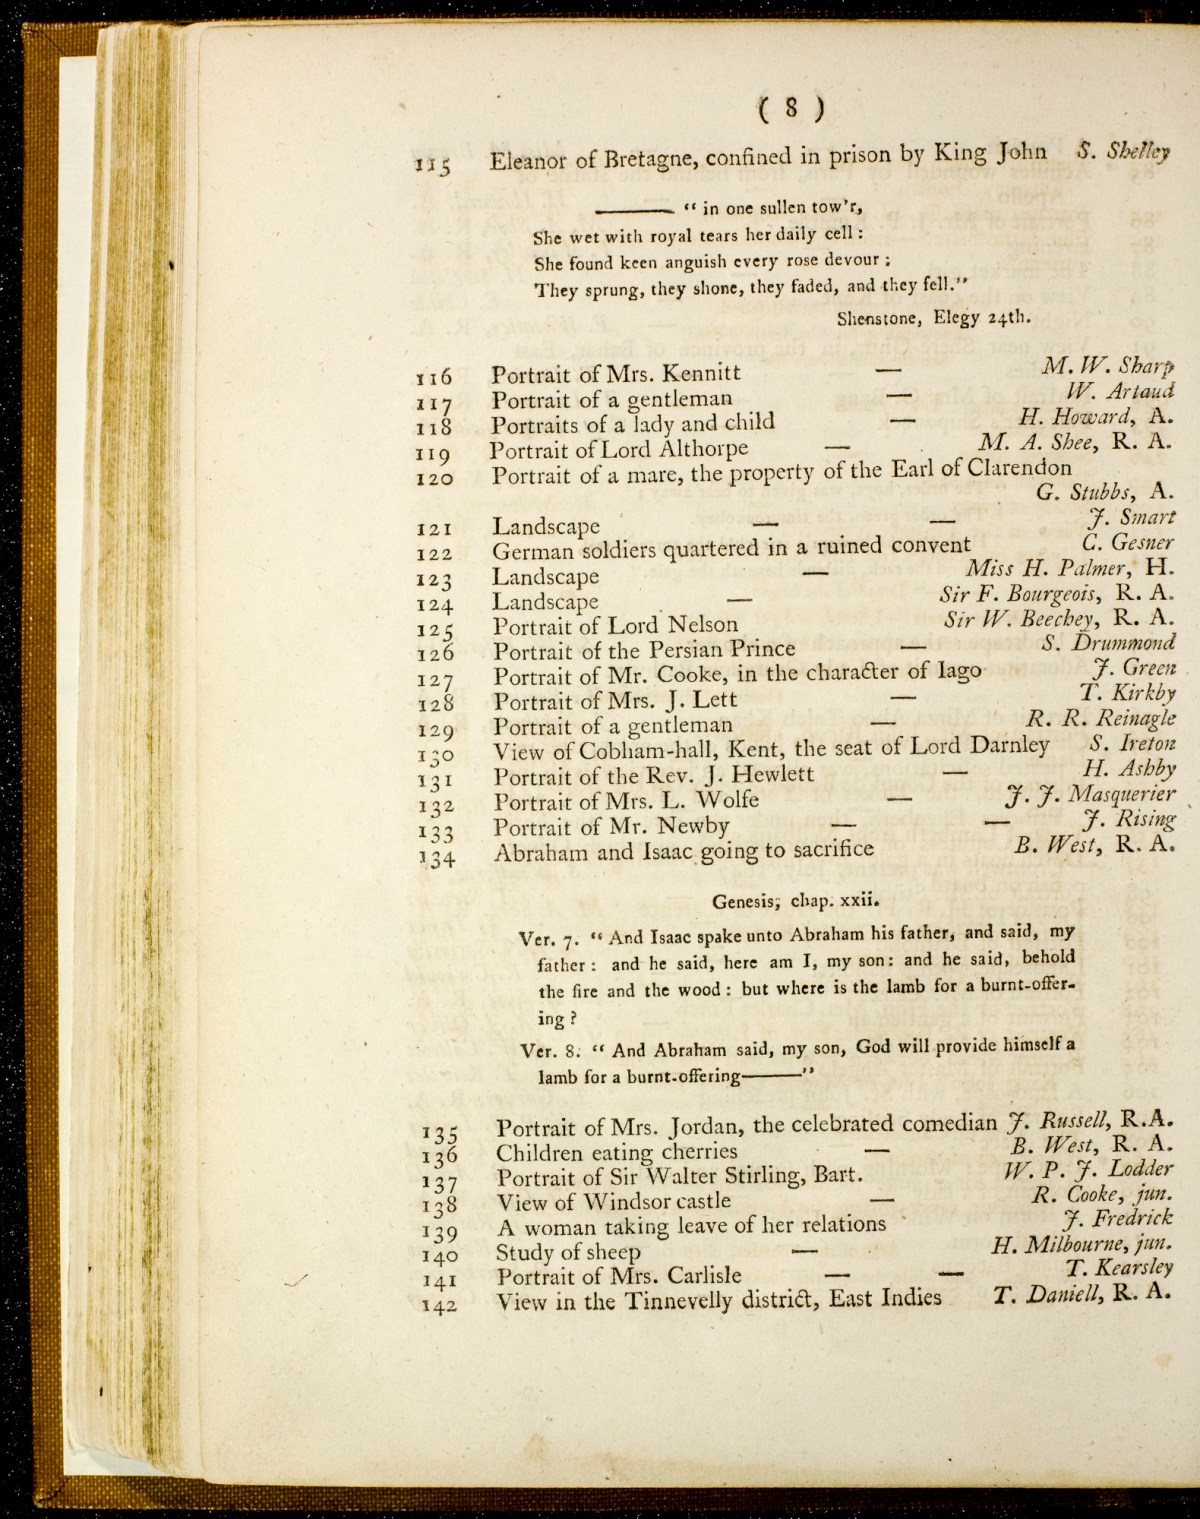 ( 8 )
115 Eleanor of Bretagne, confined in prison by King John S. Shelley
——— “ in one sullen tow’r,
She wet with royal tears her daily cell :
She found keen anguish every rose devour ;
They sprung, they shone, they faded, and they fell.”
Shenstone, Elegy 24th.
116 Portrait of Mrs. Kennitt — M. W. Sharp
117 Portrait of a gentleman — W. Artaud
118 Portraits of a lady and child — H. Howard, A.
119 Portrait of Lord Althorpe — M. A. Shee, R. A.
120 Portrait of a mare, the property of the Earl of Clarendon
G. Stubbs, A.
121 Landscape — — J. Smart
122 German soldiers quartered in a ruined convent C. Gesner
123 Landscape — Miss H. Palmer, H.
124 Landscape — Sir F. Bourgeois, R. A.
125 Portrait of Lord Nelson Sir W. Beechey, R. A.
126 Portrait of the Persian Prince — S. Drummond
127 Portrait of Mr. Cooke, in the character of Iago J. Green
128 Portrait of Mrs. J. Lett — T. Kirkby
129 Portrait of a gentleman — R. R. Reinagle
130 View of Cobham-hall, Kent, the seat of Lord Darnley S. Ireton
131 Portrait of the Rev. J. Hewlett — H. Ashby
132 Portrait of Mrs. L. Wolfe — J. J. Masquerier
133 Portrait of Mr. Newby — — J. Rising
134 Abraham and Isaac going to sacrifice B. West, R. A.
Genesis, chap. xxii.
Ver. 7. “ And Isaac spake unto Abraham his father, and said, my
father : and he said, here am I, my son : and he said, behold
the fire and the wood : but where is the lamb for a burnt-offer-
ing ?
Ver. 8. “ And Abraham said, my son, God will provide himself a
lamb for a burnt-offering———”
135 Portrait of Mrs. Jordan, the celebrated comedian J. Russell, R.A.
136 Children eating cherries — B. West, R. A.
137 Portrait of Sir Walter Stirling, Bart. W. P. J. Lodder
138 View of Windsor castle — R. Cooke, jun.
139 A woman taking leave of her relations J. Fredrick
140 Study of sheep — H. Milbourne, jun.
141 Portrait of Mrs. Carlisle — — T. Kearsley
142 View in the Tinnevelly district, East Indies T. Daniell, R. A.